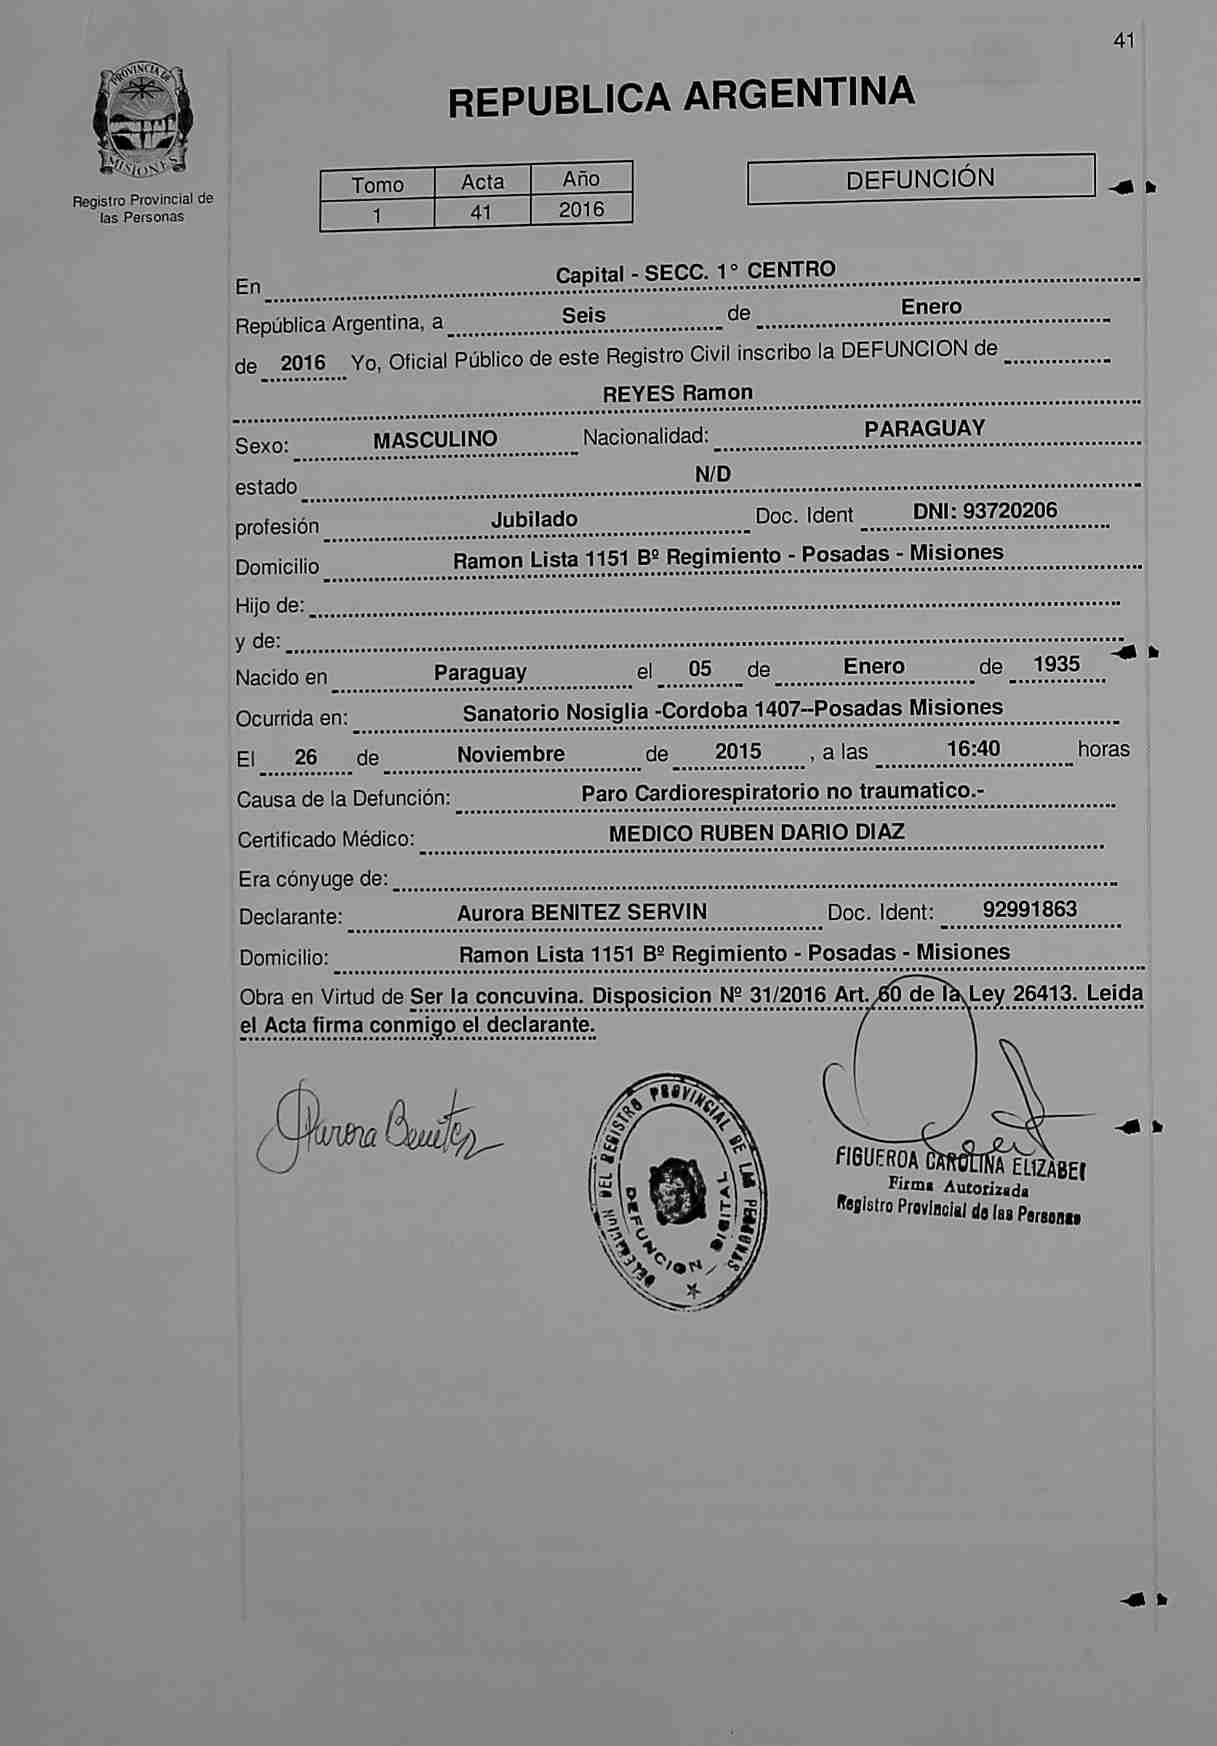 41
PROVINCIA DE
MISIONES
Registro Provincial de
las Personas
REPUBLICA ARGENTINA
Tomo Acta Año
1 41 2016
DEFUNCIÓN
En Capital - SECC. 1° CENTRO
República Argentina, a Seis de Enero
de 2016 Yo, Oficial Público de este Registro Civil inscribo la DEFUNCION de
REYES Ramon
Sexo: MASCULINO Nacionalidad: PARAGUAY
estado N/D
profesión Jubilado Doc. Ident DNI: 93720206
Domicilio Ramon Lista 1151 Bº Regimiento - Posadas - Misiones
Hijo de:
y de:
Nacido en Paraguay el 05 de Enero de 1935
Ocurrida en: Sanatorio Nosiglia -Cordoba 1407--Posadas Misiones
El 26 de Noviembre de 2015 , a las 16:40 horas
Causa de la Defunción: Paro Cardiorespiratorio no traumatico.-
Certificado Médico: MEDICO RUBEN DARIO DIAZ
Era cónyuge de:
Declarante: Aurora BENITEZ SERVIN Doc. Ident: 92991863
Domicilio: Ramon Lista 1151 Bº Regimiento - Posadas - Misiones
Obra en Virtud de Ser la concuvina. Disposicion Nº 31/2016 Art. 60 de la Ley 26413. Leida
el Acta firma conmigo el declarante.
Aurora Benitez
DELEGACION DEL REGISTRO PROVINCIAL DE LAS PERSONAS
DEFUNCION DIGITAL
FIGUEROA CAROLINA ELIZABET
Firma Autorizada
Registro Provincial de las Personas